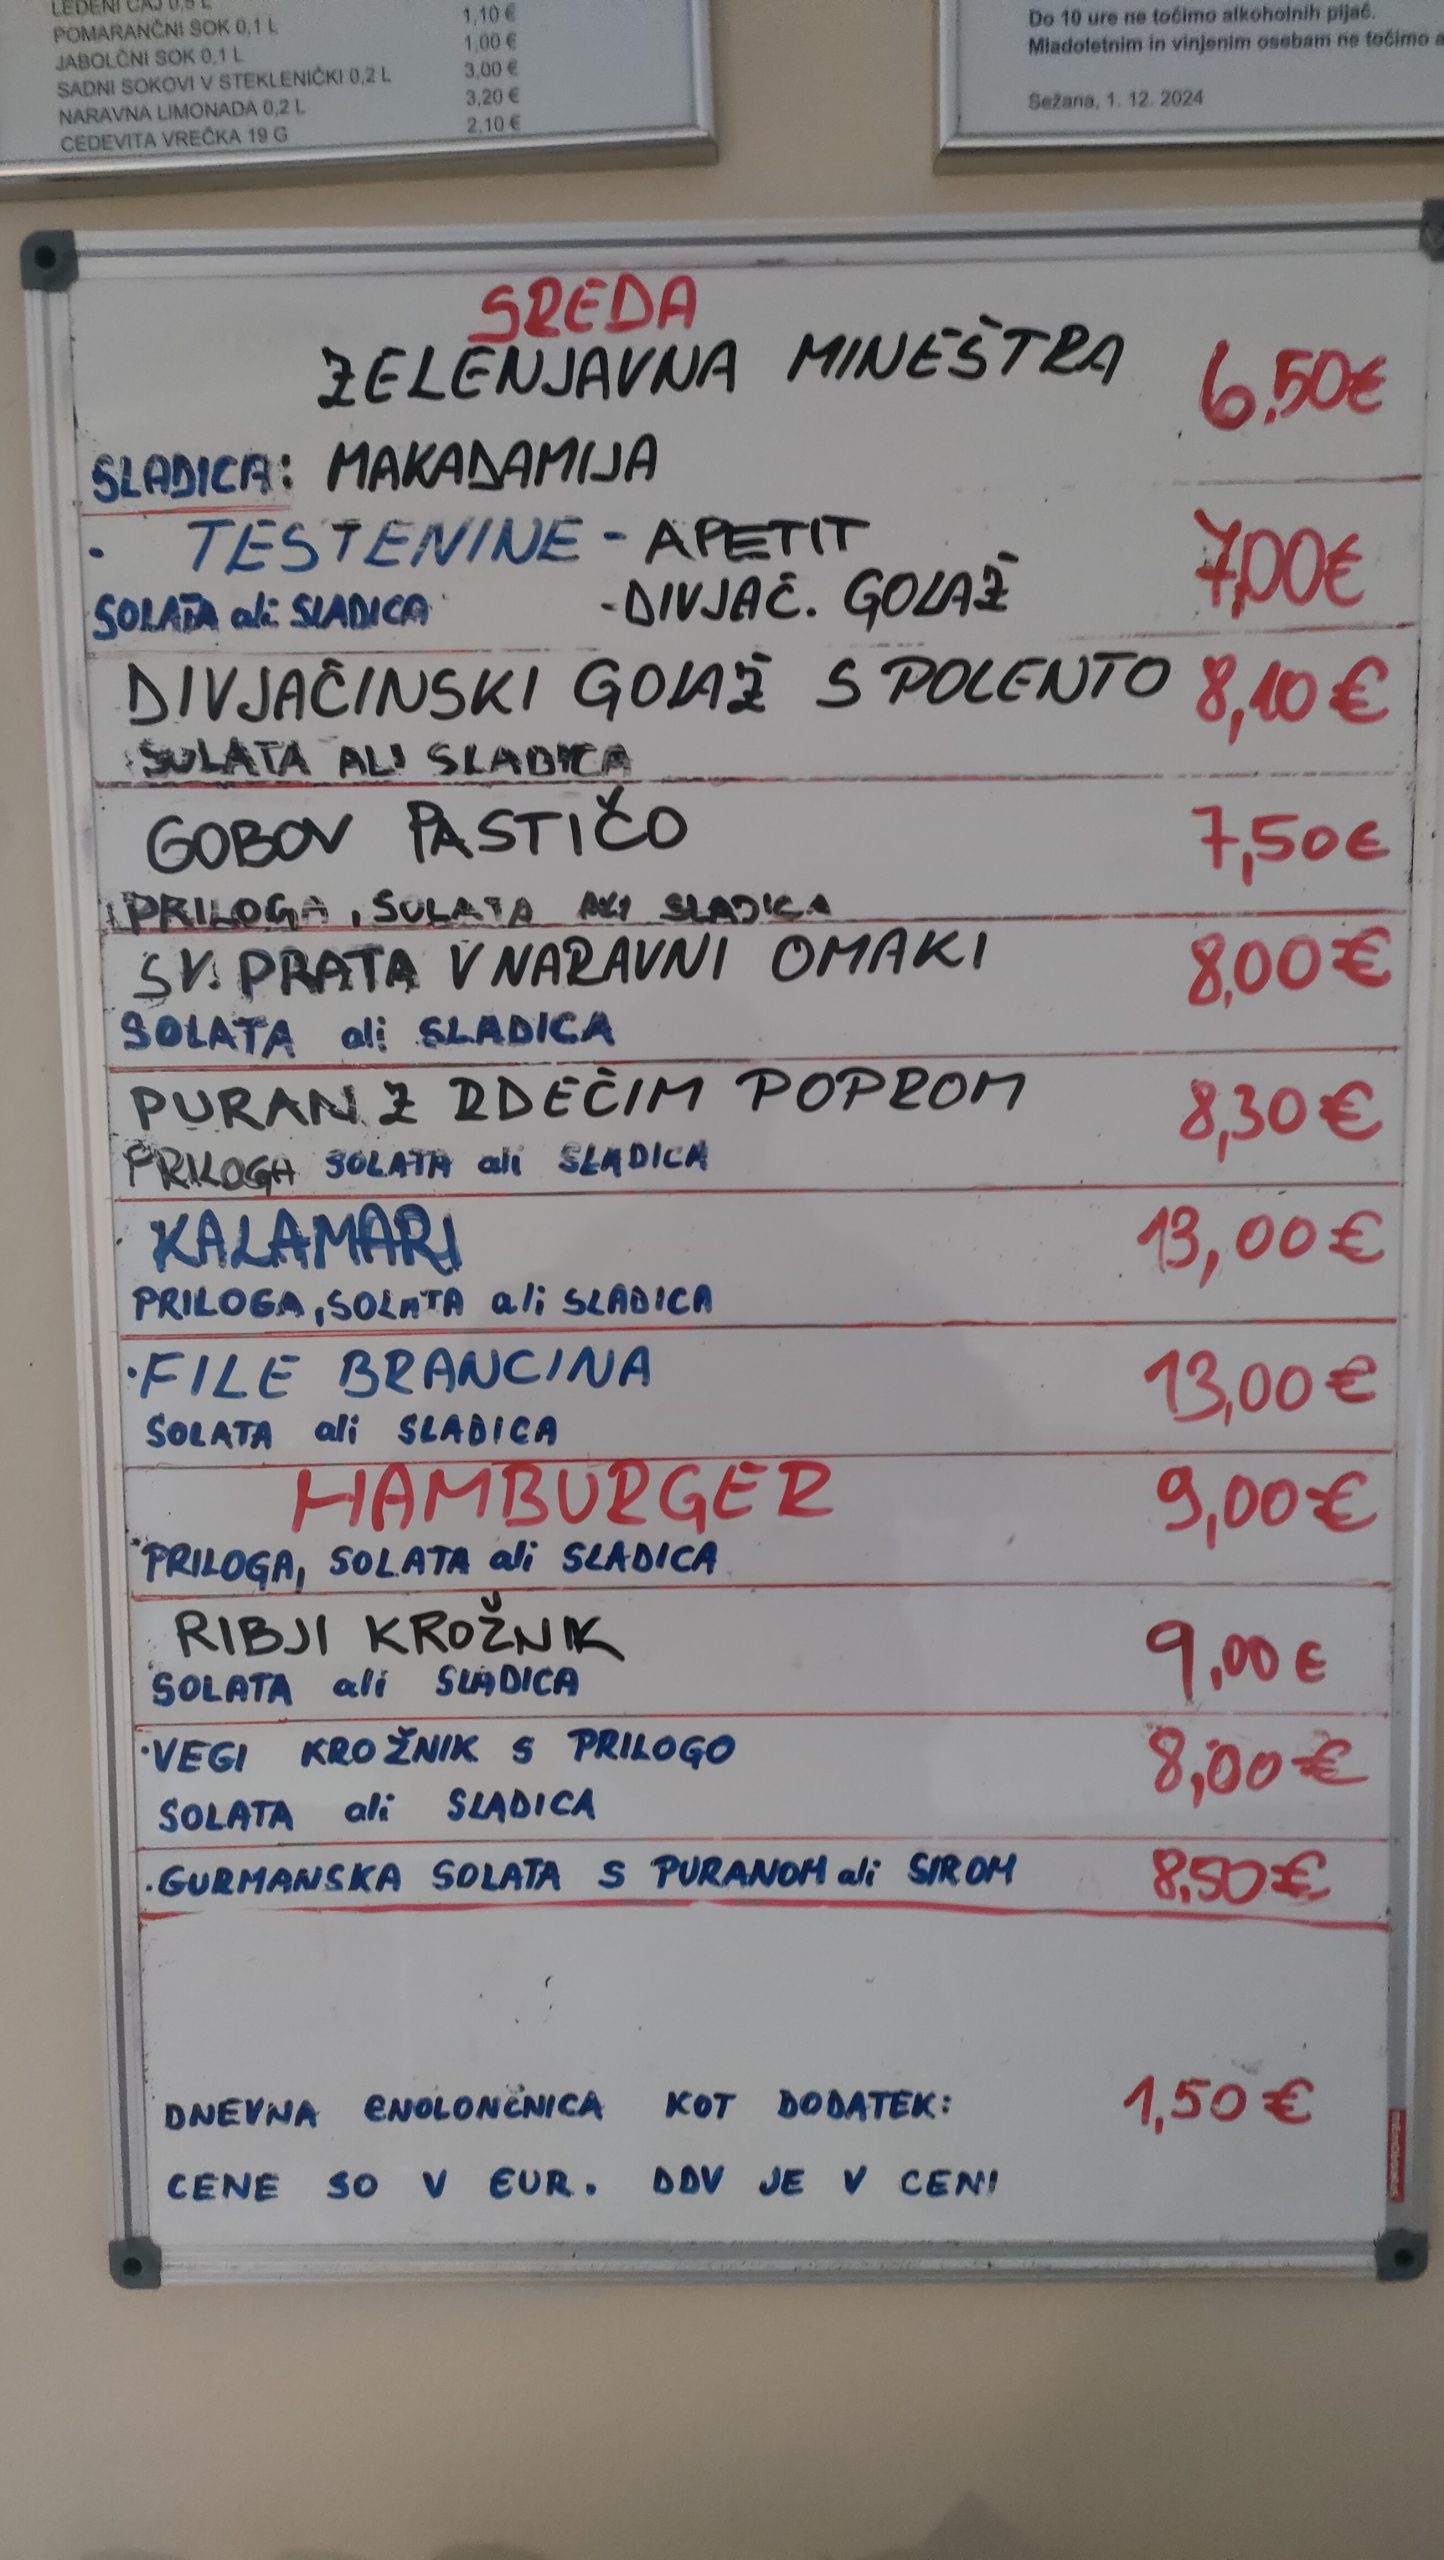 LEDENI ČAJ 0,5 L
POMARANČNI SOK 0,1 L 1,10 €
JABOLČNI SOK 0,1 L 1,00 €
SADNI SOKOVI V STEKLENIČKI 0,2 L 3,00 €
NARAVNA LIMONADA 0,2 L 3,20 €
CEDEVITA VREČKA 19 G 2,10 €
Do 10 ure ne točimo alkoholnih pijač.
Mladoletnim in vinjenim osebam ne točimo a
Sežana, 1. 12. 2024
SREDA
ZELENJAVNA MINEŠTRA 6.50€
SLADICA: MAKADAMIJA
· TESTENINE - APETIT 7,00€
SOLATA ali SLADICA -DIVJAČ. GOLAŽ
DIVJAČINSKI GOLAŽ S POLENTO 8,10€
SOLATA ALI SLADICA
GOBOV PASTIČO 7,50€
PRILOGA, SOLATA ALI SLADICA
SV. PRATA V NARAVNI OMAKI 8,00€
SOLATA ali SLADICA
PURAN Z RDEČIM POPROM 8,30€
PRILOGA SOLATA ali SLADICA
KALAMARI 13,00€
PRILOGA, SOLATA ali SLADICA
·FILE BRANCINA 13,00€
SOLATA ali SLADICA
HAMBURGER 9,00€
PRILOGA, SOLATA ali SLADICA
RIBJI KROŽNIK 9,00€
SOLATA ali SLADICA
·VEGI KROŽNIK S PRILOGO 8,00€
SOLATA ali SLADICA
·GURMANSKA SOLATA S PURANOM ali SIROM 8,50€
DNEVNA ENOLONČNICA KOT DODATEK: 1,50€
CENE SO V EUR. DDV JE V CENI